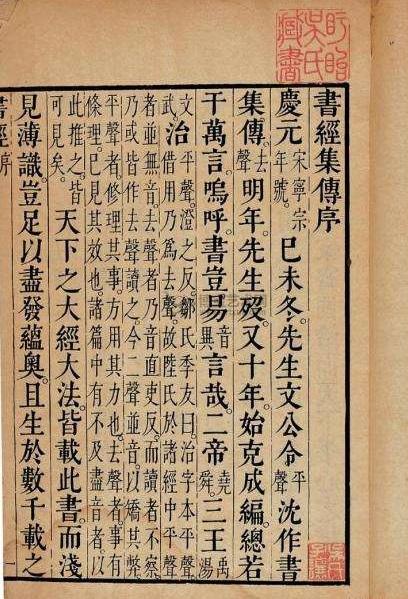 盱眙
吳氏
藏書
書經集傳序
慶元宋寧宗年號己未冬先生文公令平聲沈作書
集傳去聲明年先生歿又十年始克成編總若
干萬言嗚呼書豈易音異言哉二帝堯舜三王禹湯
文武治平聲澄之反鄒氏季友曰治字本平聲
借用乃為去聲故陸氏於諸經中平聲
者並無音去聲者乃音直吏反而讀者不察
乃或皆作去聲讀之今二聲並音以矯其弊
平聲者修理其事方用其力也去聲者事有
條理已見其效也諸篇中有不及盡音者以
此推之皆可見矣天下之大經大法皆載此書而淺
見薄識豈足以盡發蘊奧且生於數千載之
書經序
一